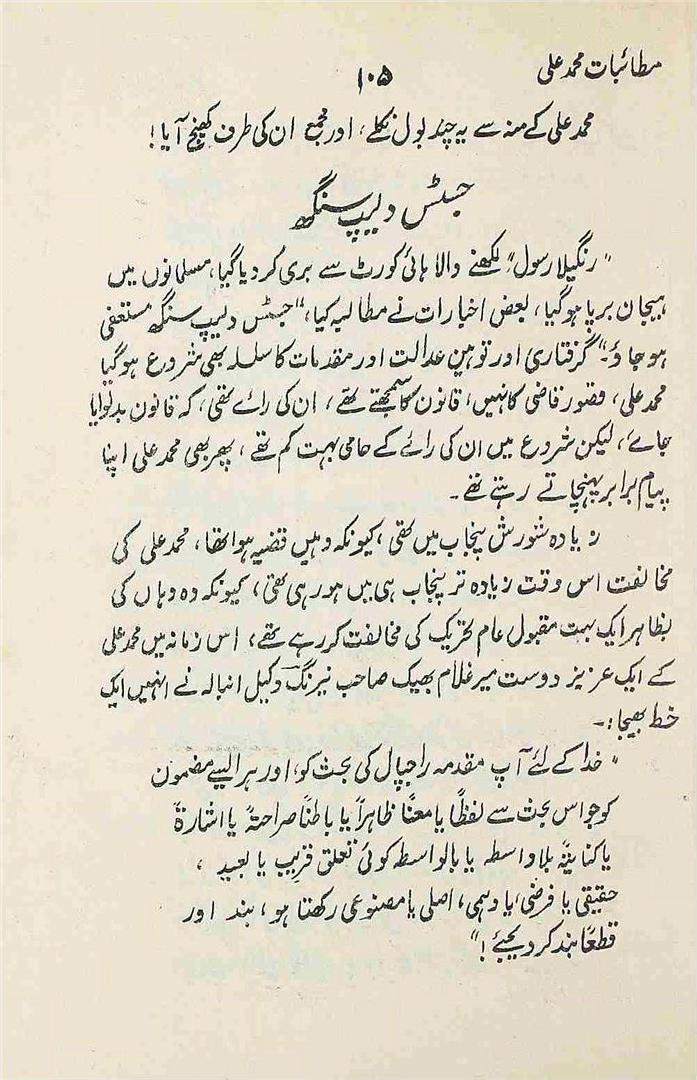 مطائبات محمد علی
۱۰۵
محمد علی کے منہ سے یہ چند بول نکلے، اور مجمع ان کی طرف کھنچ آیا!
جسٹس دلیپ سنگھ
"رنگیلا رسول" لکھنے والا ہائی کورٹ سے بری کر دیا گیا، مسلمانوں میں
ہیجان برپا ہو گیا، بعض اخبارات نے مطالبہ کیا، "جسٹس دلیپ سنگھ مستعفی
ہو جاؤ" گرفتاری اور توہین عدالت اور مقدمات کا سلسلہ بھی شروع ہو گیا
محمد علی، قصور قاضی کا نہیں، قانون کا سمجھتے تھے، ان کی رائے تھی، کہ قانون بدلوایا
جائے، لیکن شروع میں ان کی رائے کے حامی بہت کم تھے، پھر بھی محمد علی اپنا
پیام برابر پہنچاتے رہتے تھے۔
زیادہ شورش پنجاب میں تھی، کیونکہ وہیں قضیہ ہوا تھا، محمد علی کی
مخالفت اس وقت زیادہ تر پنجاب ہی میں ہو رہی تھی، کیونکہ وہ وہاں کی
بظاہر ایک بہت مقبول عام تحریک کی مخالفت کر رہے تھے، اس زمانہ میں محمد علی
کے ایک عزیز دوست میر غلام بھیک صاحب نیرنگ وکیل انبالہ نے انہیں ایک
خط بھیجا:۔
"خدا کے لئے آپ مقدمہ راجپال کی بحث کو، اور ہر ایسے مضمون
کو جو اس بحث سے لفظاً یا معناً ظاہراً یا باطناً صراحتہً یا اشارۃً
یا کنایتہً بلا واسطہ یا بالواسطہ کوئی تعلق قریب یا بعید،
حقیقی یا فرضی، یا وہمی، اصلی یا مصنوعی رکھتا ہو، بند اور
قطعاً بند کر دیجئے!"